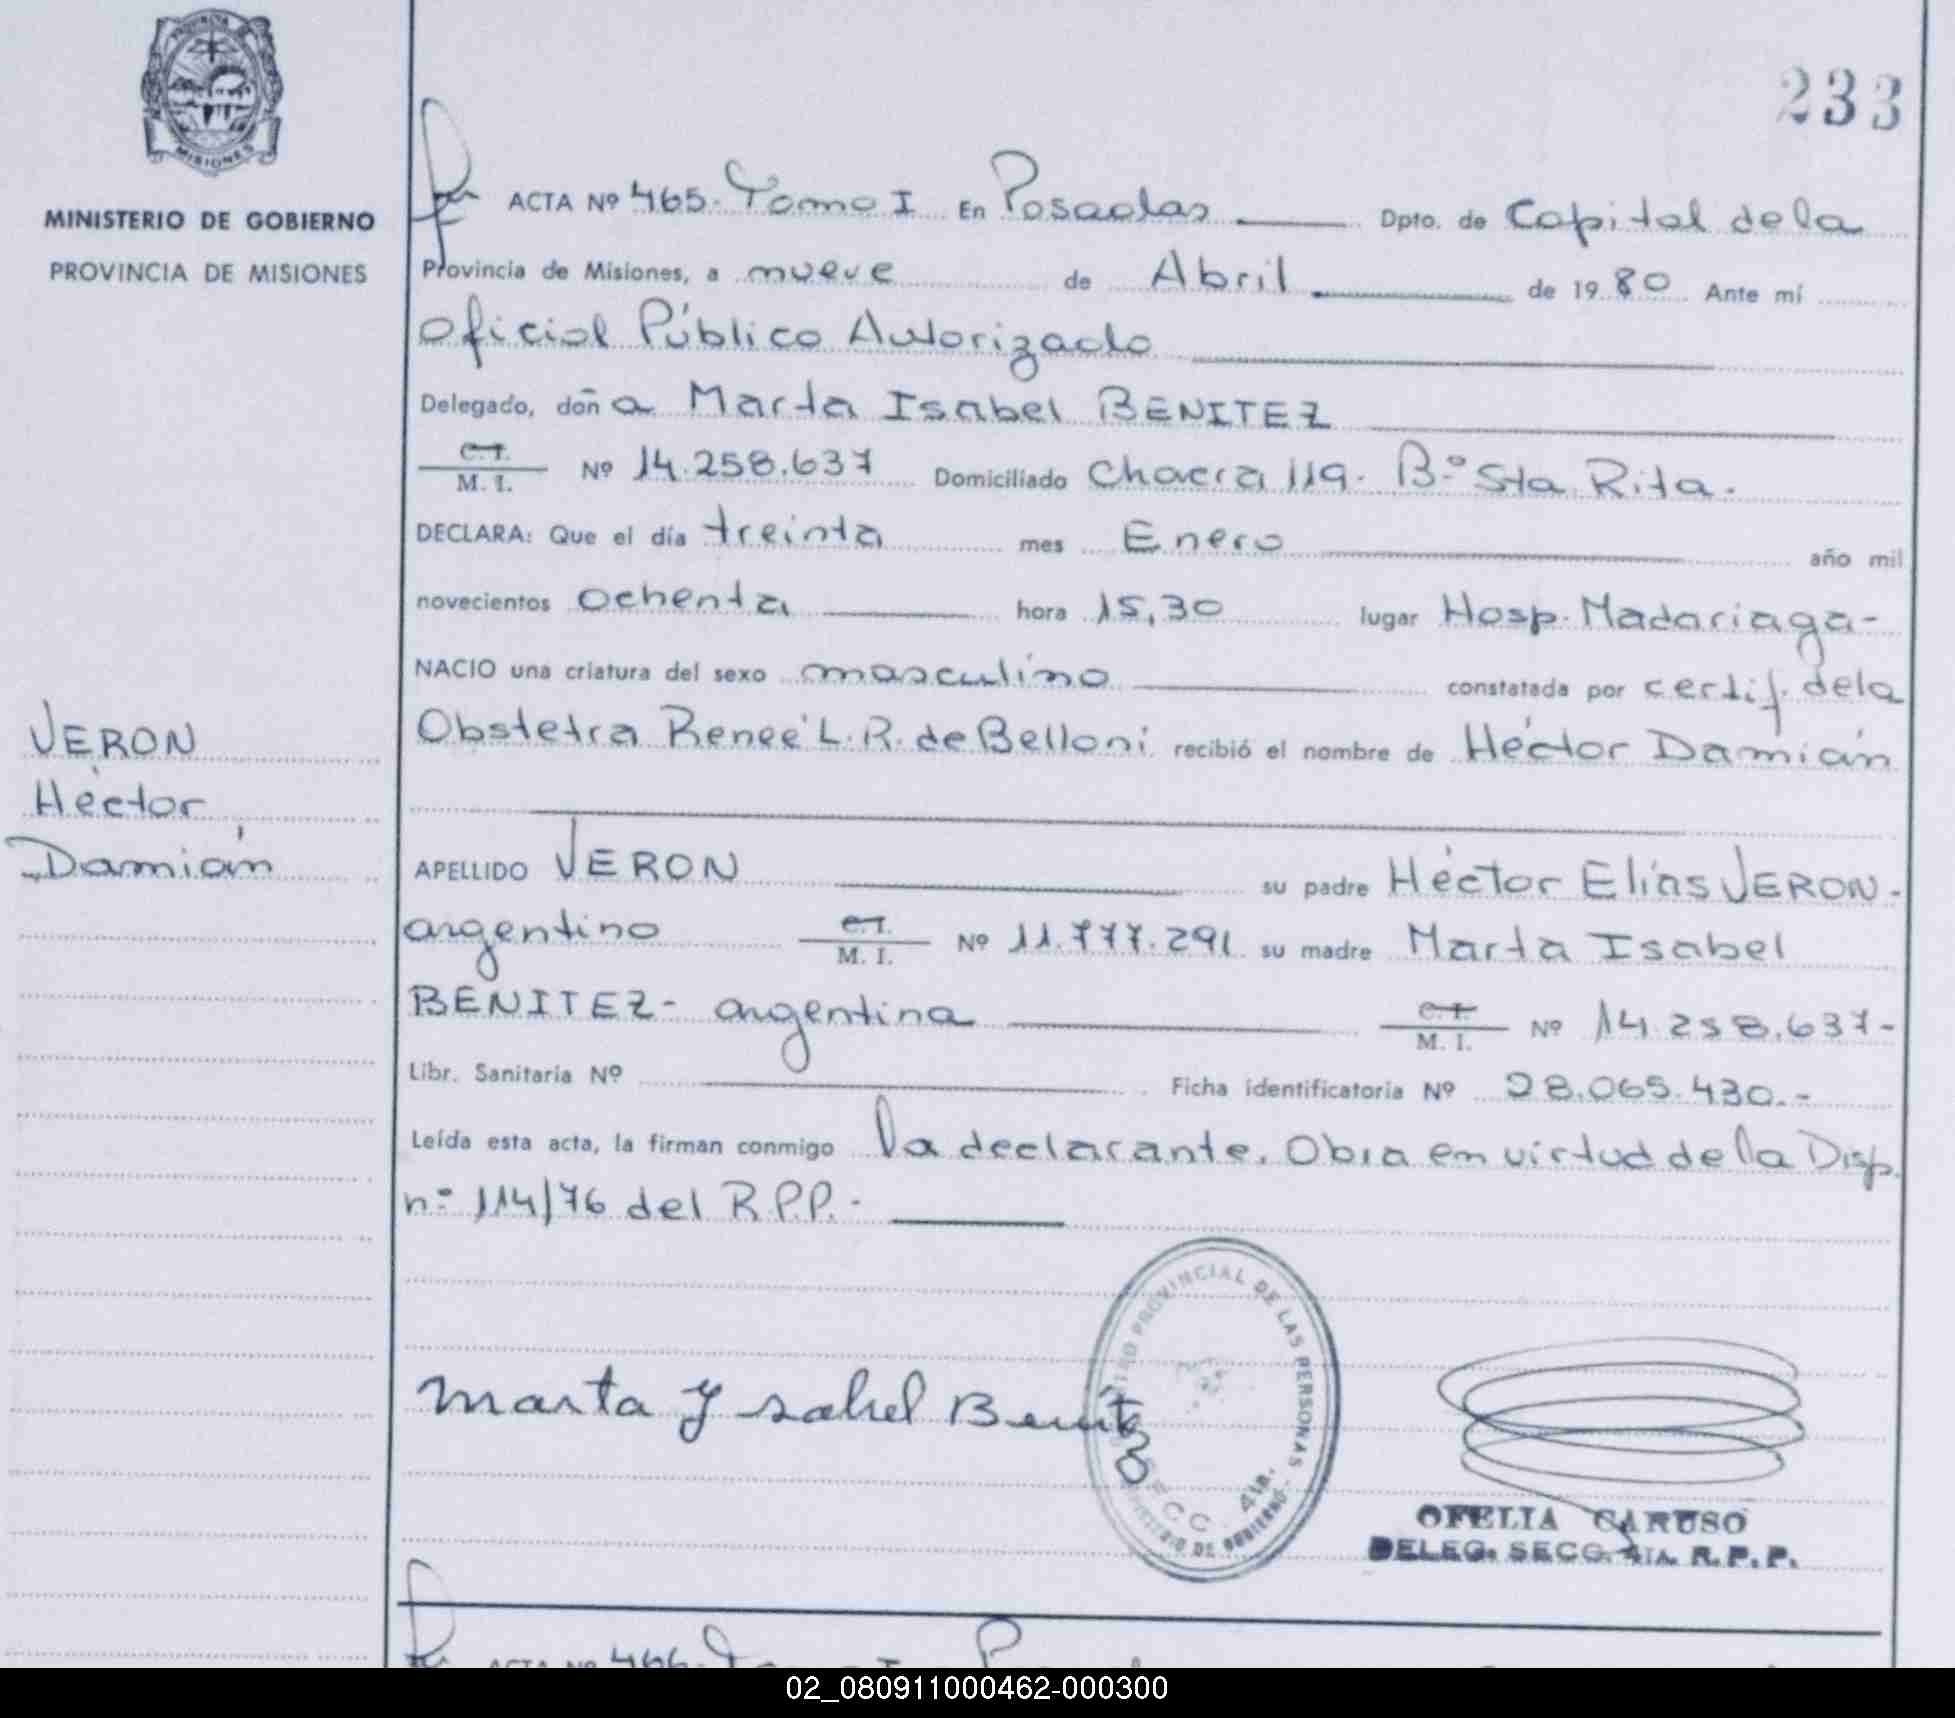 PROVINCIA DE
MISIONES
MINISTERIO DE GOBIERNO
PROVINCIA DE MISIONES
VERON
Héctor
Damián
233
ACTA Nº 465. Tomo I En Posadas Dpto. de Capital de la
Provincia de Misiones, a nueve de Abril de 1980 Ante mí
Oficial Público Autorizado
Delegado, doña Marta Isabel BENITEZ
C.I.
M. I. Nº 14.258.637 Domiciliado Chacra 119. Bº Sta Rita.
DECLARA: Que el día treinta mes Enero año mil
novecientos ochenta hora 15,30 lugar Hosp. Madariaga-
NACIO una criatura del sexo masculino constatada por certif. de la
Obstetra Reneé L. R. de Belloni recibió el nombre de Héctor Damián
APELLIDO VERON su padre Héctor Elías VERON-
argentino C.I.
M. I. Nº 11.777.291 su madre Marta Isabel
BENITEZ- argentina C.I.
M. I. Nº 14.258.637-
Libr. Sanitaria Nº Ficha identificatoria Nº 28.065.430.-
Leída esta acta, la firman conmigo la declarante. Obra en virtud de la Disp.
nº 114/76 del R.P.P.-
Marta Ysabel Benitez
PROVINCIAL DE LAS PERSONAS
SECC. 4ta.
MINISTERIO DE GOBIERNO
OFELIA CARUSO
DELEG. SECC. 4TA. R. P. P.
ACTA Nº 466
02_080911000462-000300